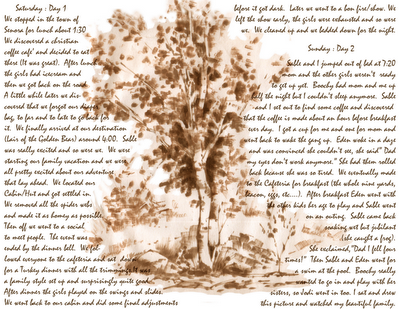 Saturday : Day 1
We stopped in the town of
Sonora for lunch about 1:30
We discovered a christian
coffee cafe' and decided to eat
there (It was great). After lunch
the girls had icecream and
then we got back on the road.
A little while later we din
covered that we forgot our diaper
bag, to far and to late to go back for
it. We finally arrived at our destination
(lair of the Golden Bear) around 4:00. Sable
was really excited and so were we. We were
starting our family vacation and we were
all pretty excited about our adventure
that lay ahead. We located our
Cabin/Hut and got settled in.
We removed all the spider webs
and made it as homey as possible.
Then off we went to a social
to meet people. The event was
ended by the dinner bell. We fol
lowed everyone to the cafeteria and sat down
for a Turkey dinner with all the trimmings. It was
a family style set up and surprisingly quite good.
After dinner the girls played on the swings and slides.
We went back to our cabin and did some final adjustments
before it got dark. Later we went to a bon fire/show. We
left the show early, the girls were exhausted and so were
we. We cleaned up and we bedded down for the night.
Sunday : Day 2
Sable and I jumped out of bed at 7:20
mom and the other girls weren't ready
to get up yet. Boochy had mom and me up
all the night but I couldn't sleep anymore. Sable
and I set out to find some coffee and discovered
that the coffee is made about an hour before breakfast
ever day. I got a cup for me and one for mom and
went back to wake the gang up. Eden woke in a daze
and was convinced she couldn't see, she said" Dad
my eyes don't work anymore." She had them rolled
back because she was so tired. We eventually made
to the Cafeteria for breakfast (the whole nine yards,
bacon, eggs, etc....). After breakfast Eden went with
the other kids her age to play and Sable went
on an outing. Sable came back
soaking wet but jubilant
(she caught a frog).
She exclaimed,"Dad I fell four
times!" Then Sable and Eden went for
a swim at the pool. Boochy really
wanted to go in and play with her
sisters, so Jodi went in too. I sat and drew
this picture and watched my beautiful family.